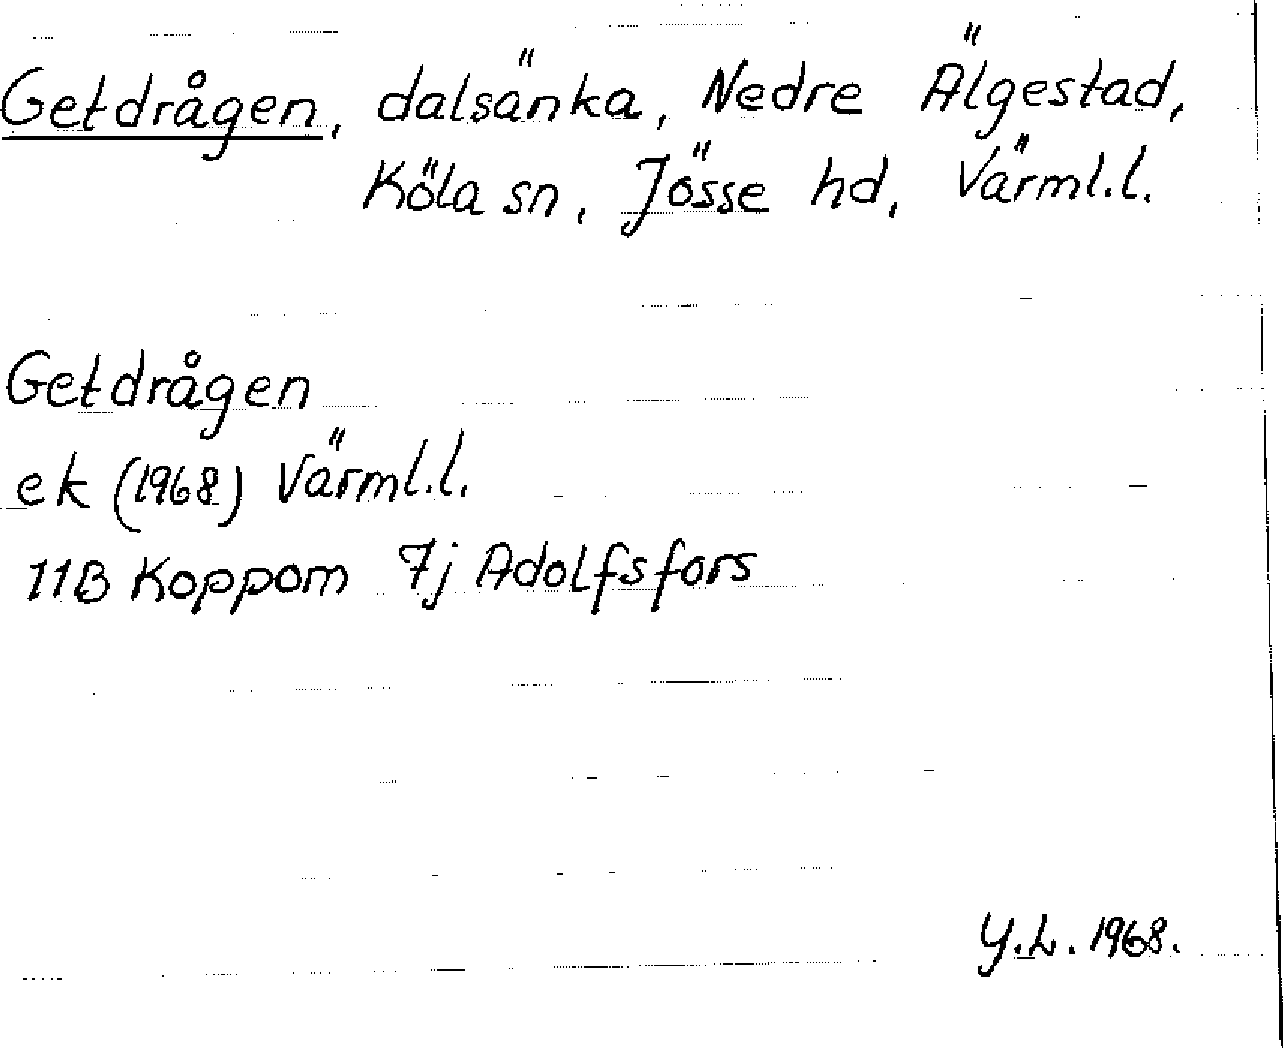 Getdrågen, dalsänka, Nedre Älgestad,
Köla sn, Jösse hd, Värml.l.
Getdrågen
ek (1968) Värml.l.
11B Koppom 7j Adolfsfors
Y.L. 1968.